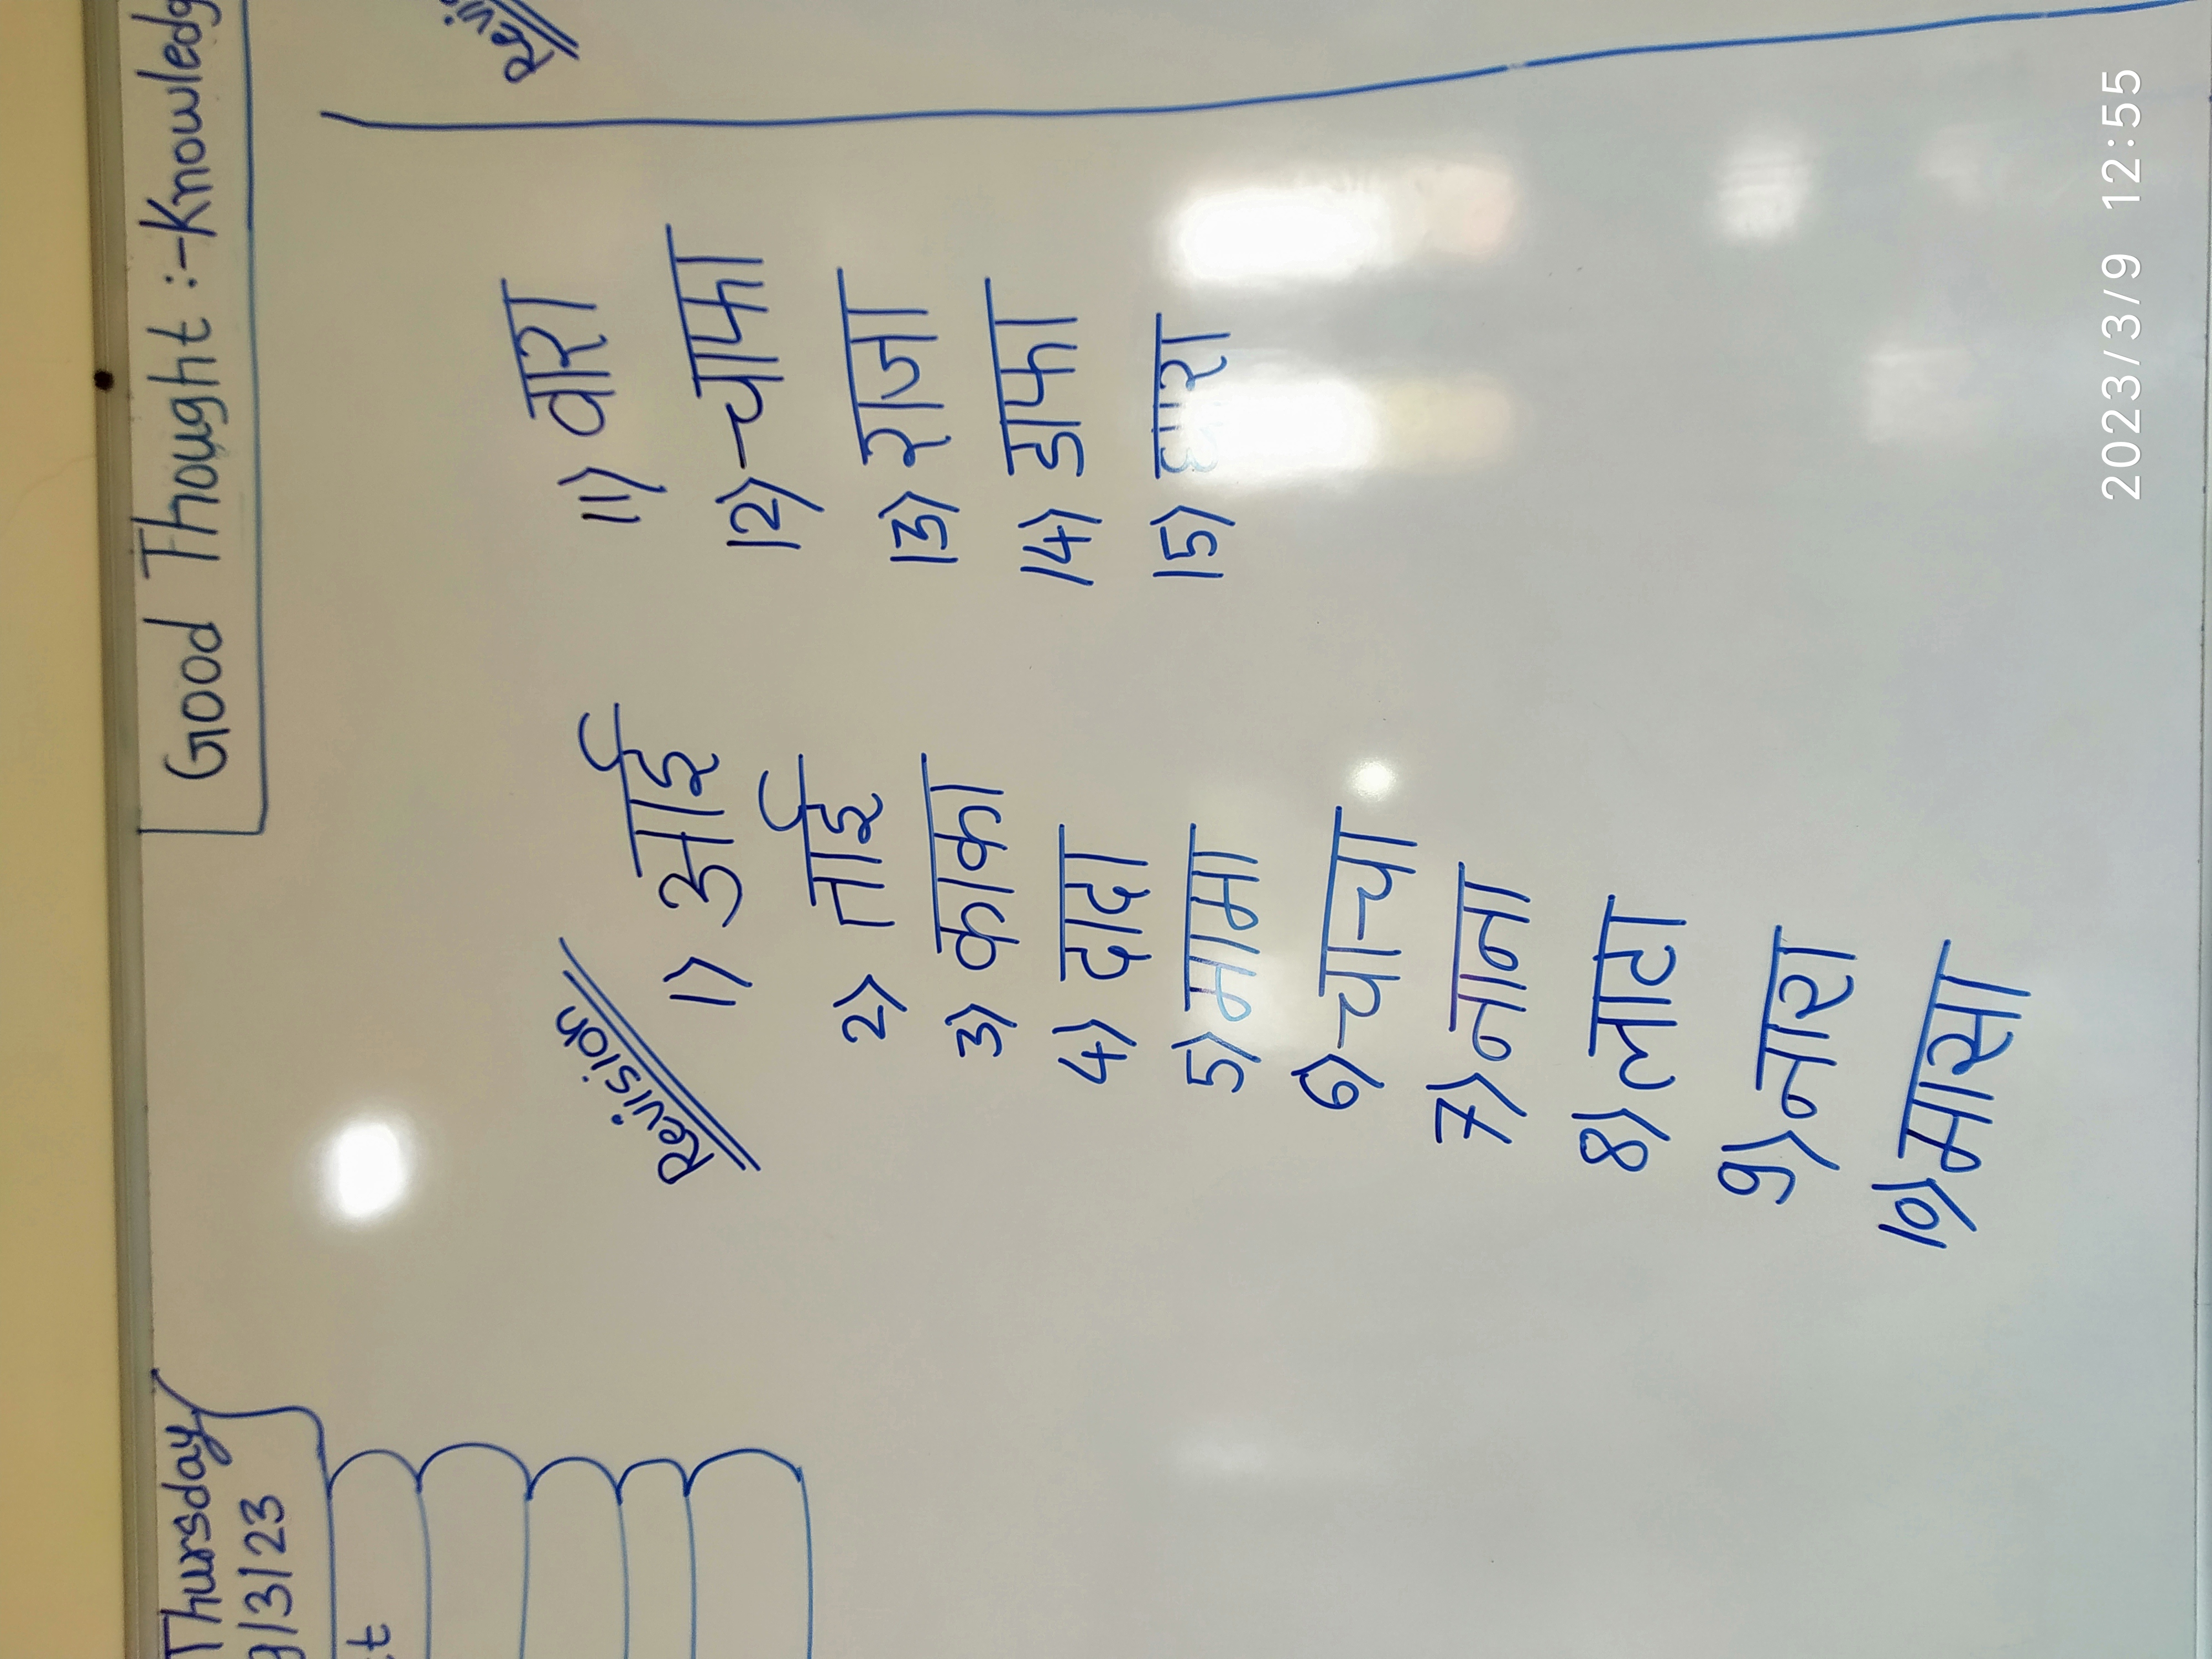 Thursday
/3/23
Good Thought :- Knowledg
Revision
1) आई
2) ताई
3) काका
4) दादा
5) मामा
6) चाचा
7) नाना
8) लाटा
9) नारा
10) मारा
11) वारा
12) चाफा
13) राजा
14) डाफा
15) धारा
Revi
2023/3/9 12:55